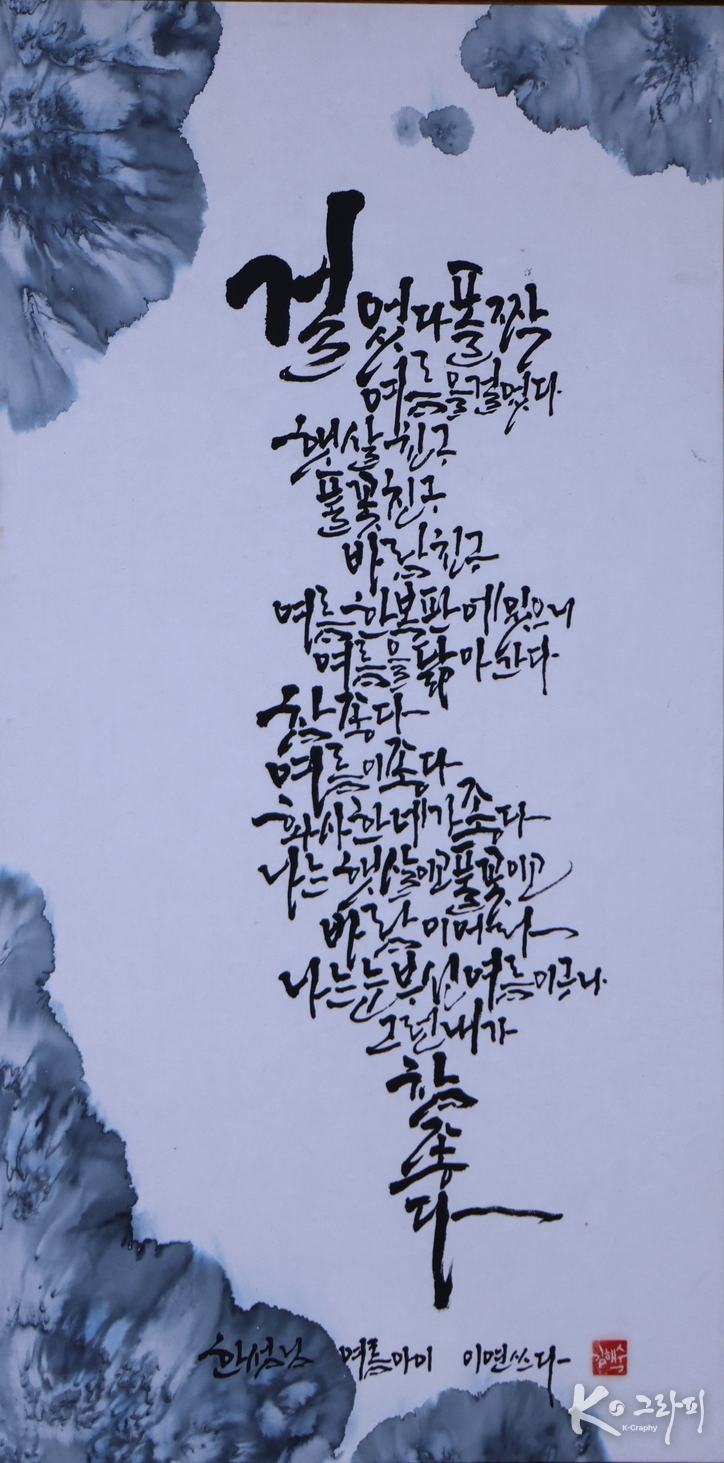 걸었다 폴짝
여름을 걸었다.
햇살 친구
풀꽃 친구
바람 친구
여름 한복판에 있으니
여름을 닮아 간다.
참 좋다
여름이 좋다
화사한 네가 좋다
나는 햇살이고 풀꽃이고
바람이려니
나는 눈부신 여름이구나.
그런 내가
참
좋
다
한성남 여름아이 이연쓰다
김해숙
K 그라피
K-Graphy